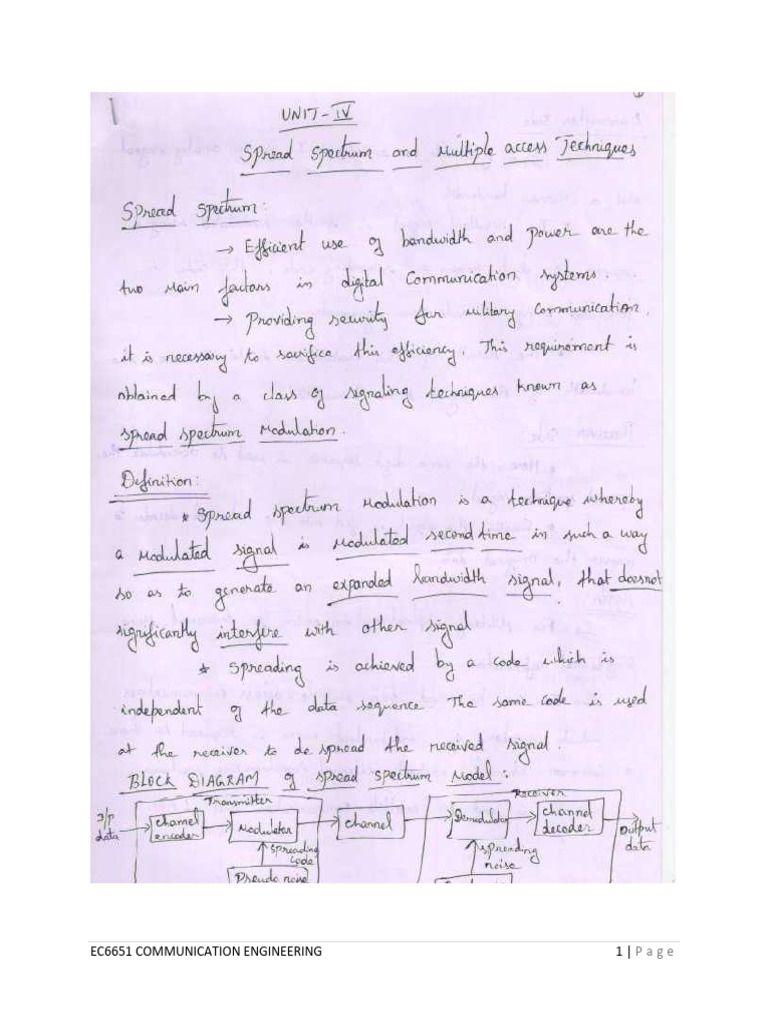 UNIT-IV
Spread Spectrum and Multiple access Techniques
Spread Spectrum:
→ Efficient use of bandwidth and power are the
two main factors in digital Communication systems.
→ Providing security for military communication,
it is necessary to sacrifice this efficiency. This requirement is
obtained by a class of signaling techniques known as
spread spectrum Modulation.
Definition:
* Spread spectrum Modulation is a technique whereby
a modulated signal is modulated second time in such a way
so as to generate an expanded bandwidth signal, that doesnot
significantly interfere with other signal
* Spreading is achieved by a code which is
independent of the data sequence. The same code is used
at the receiver to de spread the received signal.
BLOCK DIAGRAM of spread spectrum Model:
Transmitter
Receiver
I/p data
channel encoder
Modulator
channel
Demodulator
channel decoder
output data
spreading code
spreading noise
Pseudo noise
EC6651 COMMUNICATION ENGINEERING 1 | Page